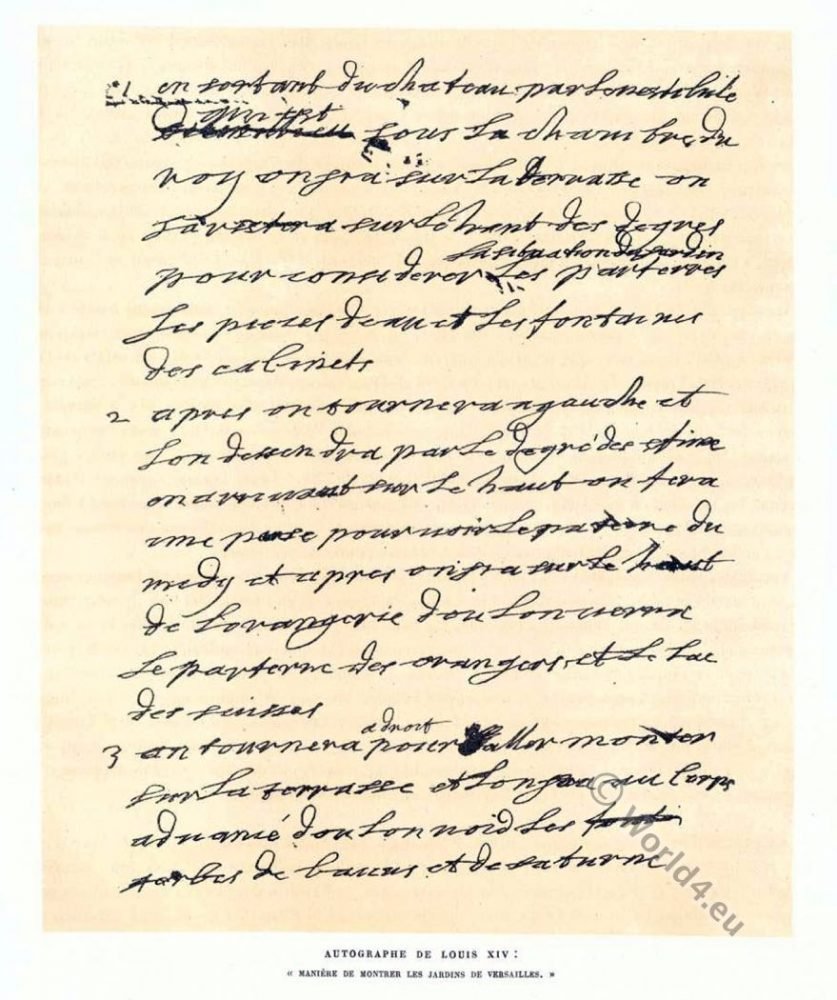 1 en sortant du chateau par le vestibule
qui est
sous la chambre du
roy on ira sur la terrasse on
sarestera sur le haut des degres
la situation du jardin
pour considerer les parterres
les pieces deau et les fontaines
des cabinets
2 apres on tournera a gauche et
lon dessendra par le degré des
on arrivant sur le haut on fera
une pose pour voir le parterre du
midy et apres on ira sur le haut
de lorangerie dou lon verra
le parterre des orangers et le lac
des suisses
a droit
3 on tournera pour aller monter
sur la terrasse et lon ira au corps
advancé dou lon void les
de bacus et de saturne
© World4.eu
AUTOGRAPHE DE LOUIS XIV :
« MANIÈRE DE MONTRER LES JARDINS DE VERSAILLES. »